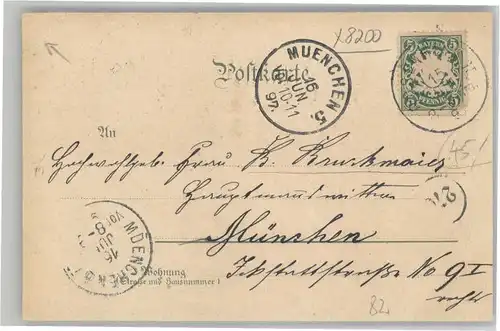 x8200
Postkarte
MUENCHEN 5.
16
JUN
10-11
97.
BAYERN
5 5
PFENNIG
45/
An
Hochwohlgeb. Frau B. Kruckmaier
Hauptmannswitwe
München
Ickstattstraße No 9 I
rechts
MUENCHEN
16
JUN
Wohnung
(Straße und Hausnummer)
82